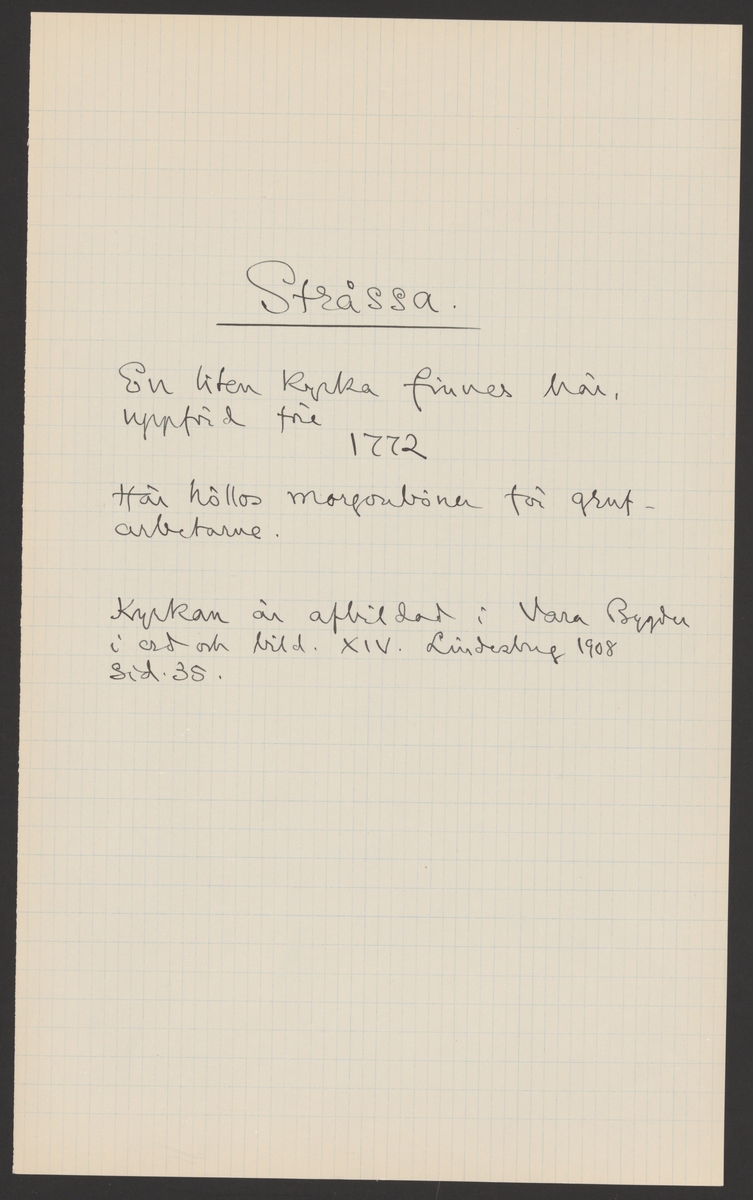 Stråssa.
En liten kyrka finnes här,
uppförd före
1772
Här höllos morgonböner för gruf-
arbetarne.
Kyrkan är afbildad i Våra Bygder
i ord och bild. XIV. Lindesberg 1908
Sid. 35.